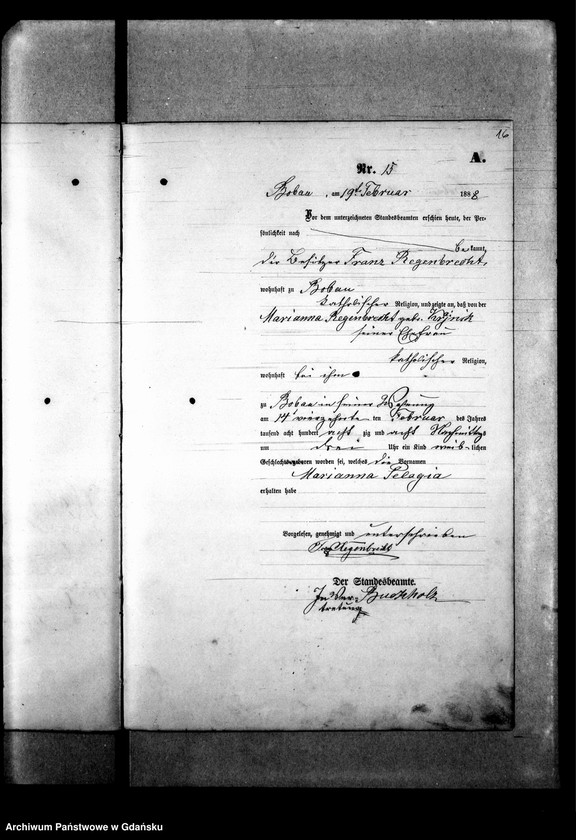 16
A.
Nr. 15
Bobau, am 19t Februar 1888
Vor dem unterzeichneten Standesbeamten erschien heute, der Per-
sönlichkeit nach
bekannt,
der Besitzer Franz Regenbrecht,
wohnhaft zu Bobau
katholischer Religion, und zeigte an, daß von der
Marianna Regenbrecht geb.
seiner Ehefrau
katholischer Religion,
wohnhaft bei ihm
zu Bobau in seiner Wohnung
am 14 vierzehnten ten Februar des Jahres
tausend acht hundert acht zig und acht Nachmittags
um drei Uhr ein Kind weib-lichen
Geschlechts geboren worden sei, welches die Vornamen
Marianna Pelagia
erhalten habe
Vorgelesen, genehmigt und unterschrieben
Regenbrecht
Der Standesbeamte.
In Ver- Buchholz
tretung
Archiwum Państwowe w Gdańsku